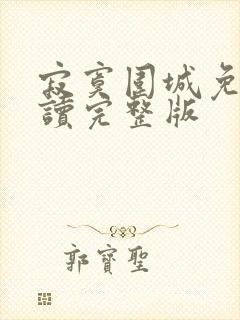 寂寞围城免
讀完整版
郭寶聖